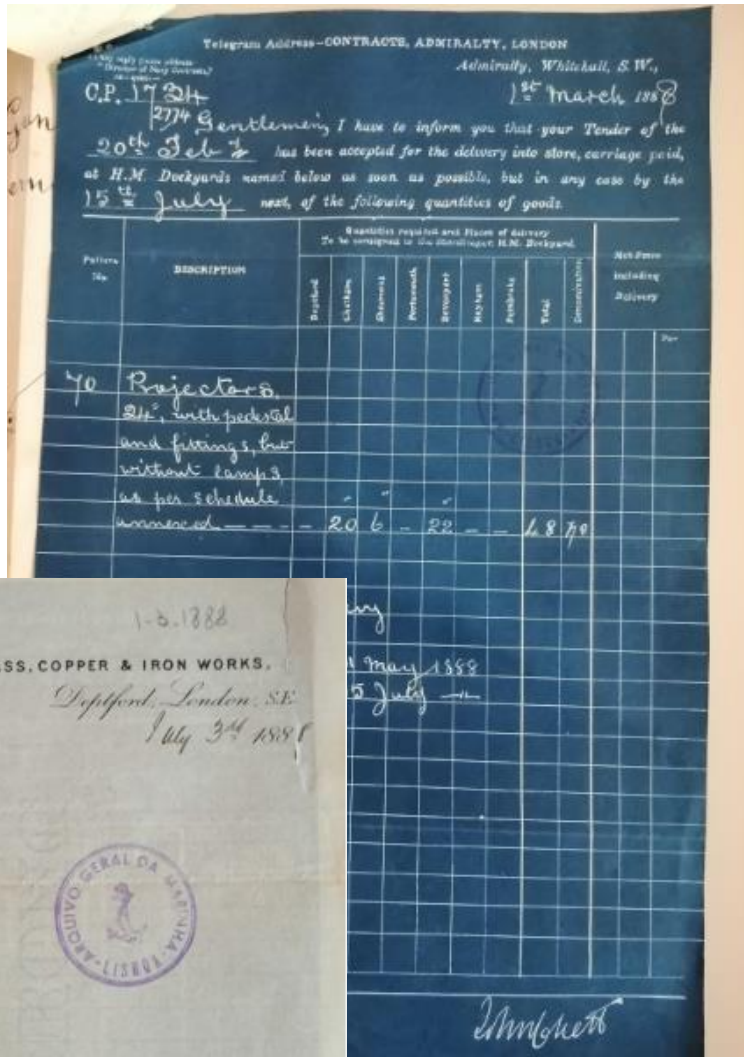 Telegram Address—CONTRACTS, ADMIRALTY, LONDON
Admiralty, Whitehall, S.W.,
C.P. 1724
2774
1st March 1888
Gentlemen, I have to inform you that your Tender of the
20th Feb has been accepted for the delivery into store, carriage paid,
at H.M. Dockyards named below as soon as possible, but in any case by the
15th July next, of the following quantities of goods.
Quantities required and Places of delivery
To be consigned to the Storekeeper, H.M. Dockyard.
Pattern No.
DESCRIPTION
Deptford
Chatham
Sheerness
Portsmouth
Devonport
Keyham
Pembroke
Total
Denomination
Net Price including Delivery
Per
70 Projectors,
24", with pedestal
and fittings, but
without lamps,
as per schedule
annexed — — — - 20 6 - 22 - - 48 No
May 1888
15 July
1-3.1888
SS, COPPER & IRON WORKS,
Deptford, London, S.E.
July 3rd 1888
ARQUIVO GERAL DA MARINHA
LISBOA